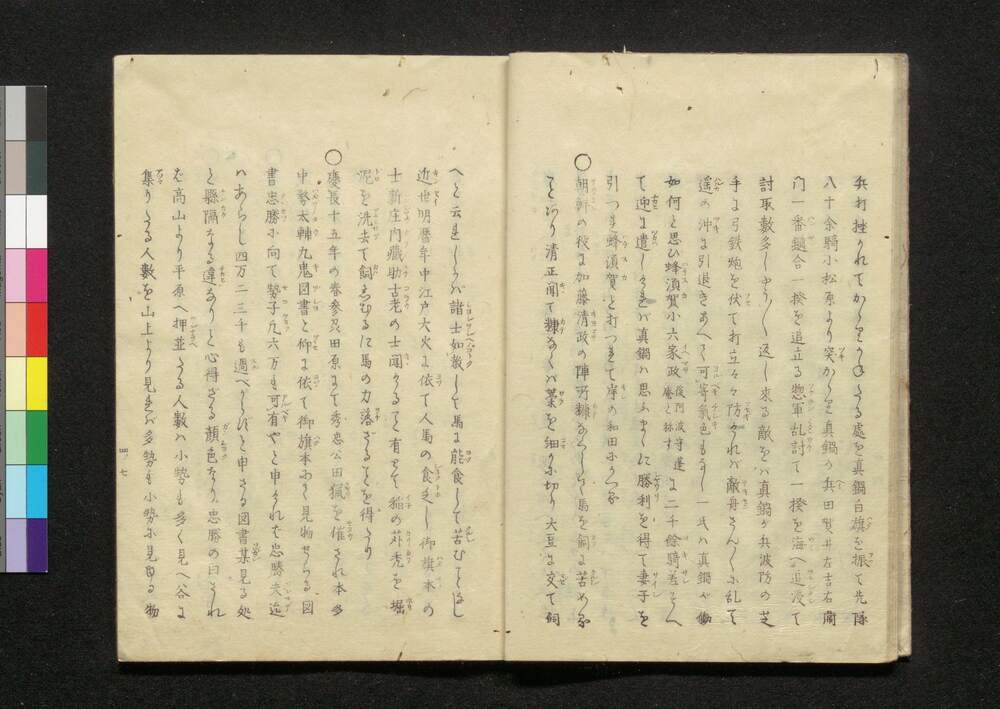 兵打挫かれてかゝりかねたる處を真鍋白旗を振て先隊
八十余騎小松原より突かゝる真鍋の兵田賀井左吉右衛
門一番鎗合一揆を追立る惣軍乱討て一揆を海へ追浸て
討取數多しかりし返し来る敵をハ真鍋が兵波防の芝
手に弓鉄炮を伏て打立々々防ぎけれバ敵舟さん〲に乱て
遥の沖に引退きあへて可寄氣色もなし一氏ハ真鍋や働
如何と思ひ蜂須賀小六家政後阿波守蓬庵と称すに二千余騎差そへ
て迎に遣しけるが真鍋ハ思ふまゝに勝利を得て妻子を
引つれ蜂須賀と打つれて岸の和田にかへる
○朝鮮の役に加藤清政の陣所糠なくして馬を飼に苦める
ことあり清正聞て糠なくハ藁を細かに切り大豆に交て飼
へと云れしかハ諸士如教して馬に能食して苦むことなし
近世明暦年中江戸大火に依て人馬の食乏し御旗本の
士新庄内蔵助古老の士聞けること有とて稲の苅禿を堀
泥を洗去て飼しむるに馬の力落ざることを得たり
○慶長十五年の春参州田原にて秀忠公田猟を催され本多
中務太輔九鬼図書と仰に依て御旗本にて見物せらる図
書忠勝に向て勢子凡六万も可有やと申された忠勝夫迄
ハあらじ四万二三千も過べからずと申さる図書某見る処
と縣隔なる違なりと心得ざる顔色なり忠勝の曰されハ
を高山より平原へ押並たる人数ハ小勢も多く見へ谷に
集りたる人數を山上より見れバ多勢も小勢に見ゆる物
四ノ七